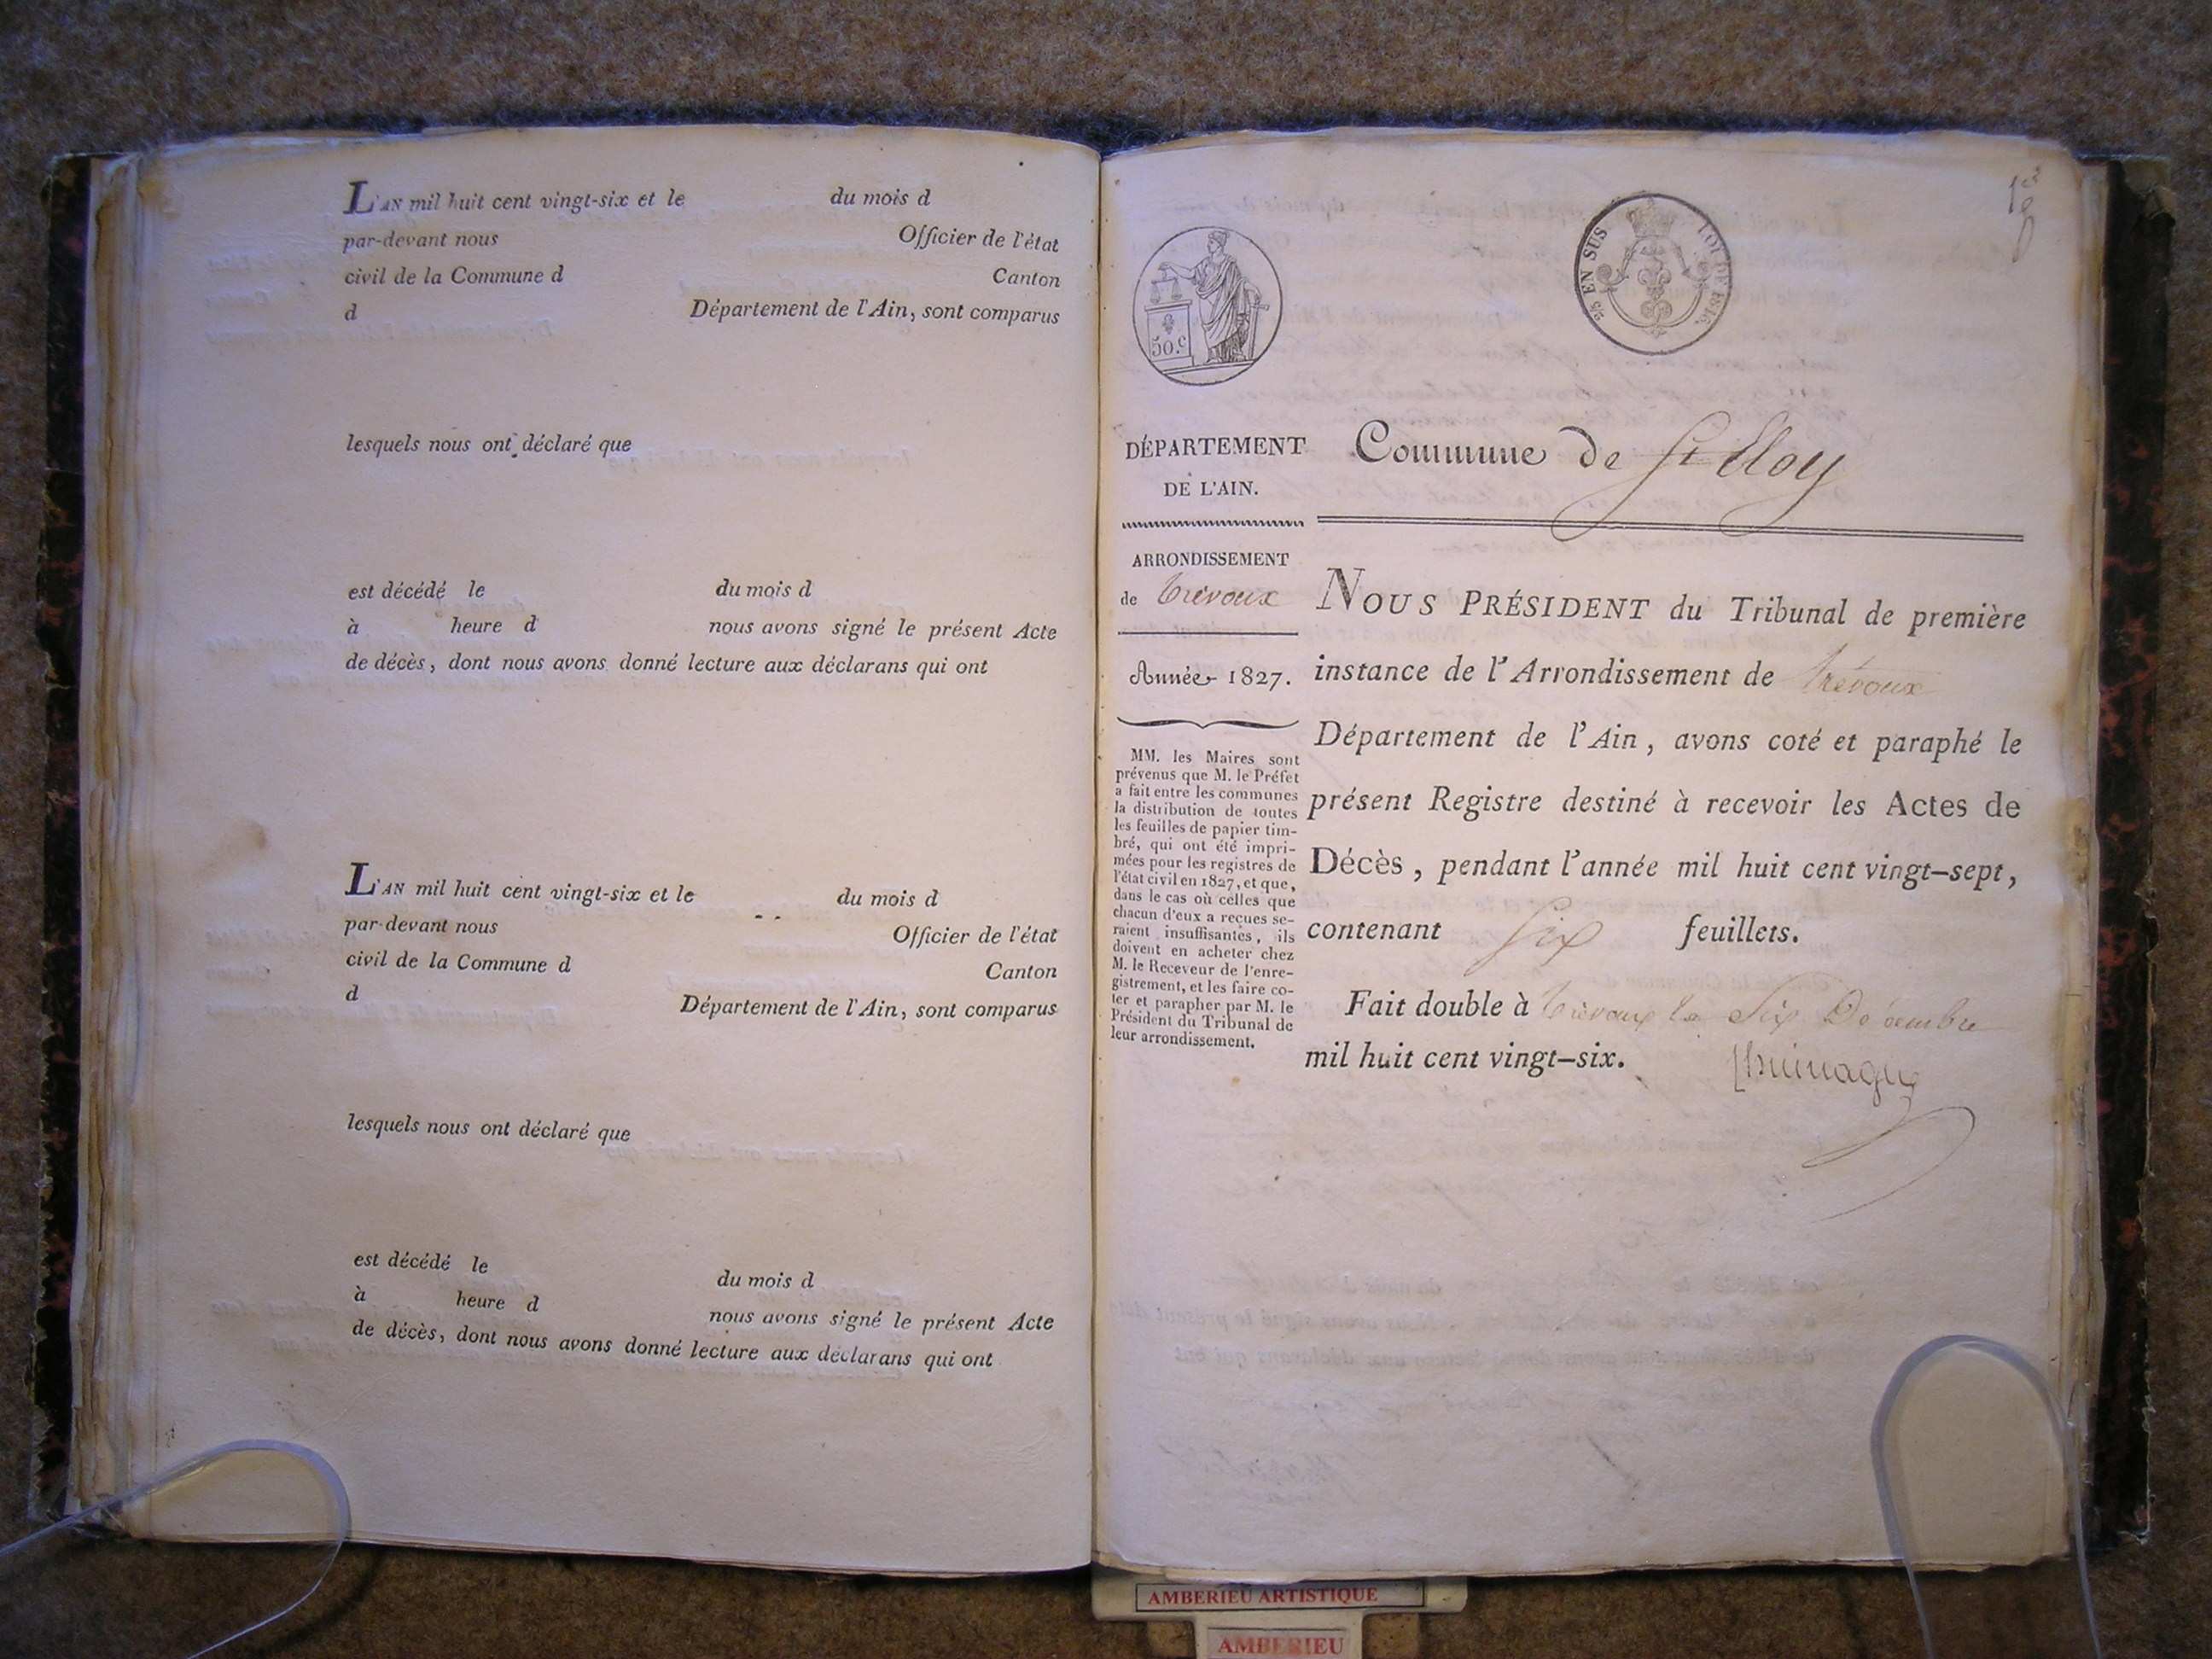 L'AN mil huit cent vingt-six et le du mois d
par-devant nous Officier de l'état
civil de la Commune d Canton
d Département de l'Ain, sont comparus
lesquels nous ont déclaré que
est décédé le du mois d
à heure d nous avons signé le présent Acte
de décès, dont nous avons donné lecture aux déclarans qui ont
L'AN mil huit cent vingt-six et le du mois d
par-devant nous Officier de l'état
civil de la Commune d Canton
d Département de l'Ain, sont comparus
lesquels nous ont déclaré que
est décédé le du mois d
à heure d nous avons signé le présent Acte
de décès, dont nous avons donné lecture aux déclarans qui ont
50.c
EN SUS LOI DE 1816.
DÉPARTEMENT
DE L'AIN.
ARRONDISSEMENT
de Trévoux
Année 1827.
MM. les Maires sont
prévenus que M. le Préfet
a fait entre les communes
la distribution de toutes
les feuilles de papier tim-
bré, qui ont été impri-
mées pour les registres de
l'état civil en 1827, et que,
dans le cas où celles que
chacun d'eux a reçues se-
raient insuffisantes, ils
doivent en acheter chez
M. le Receveur de l'enre-
gistrement, et les faire co-
ter et parapher par M. le
Président du Tribunal de
leur arrondissement.
Commune de St Eloy
NOUS PRÉSIDENT du Tribunal de première
instance de l'Arrondissement de Trévoux
Département de l'Ain, avons coté et paraphé le
présent Registre destiné à recevoir les Actes de
Décès, pendant l'année mil huit cent vingt-sept,
contenant Six feuillets.
Fait double à Trévoux le Six Décembre
mil huit cent vingt-six.
AMBERIEU ARTISTIQUE
AMBERIEU